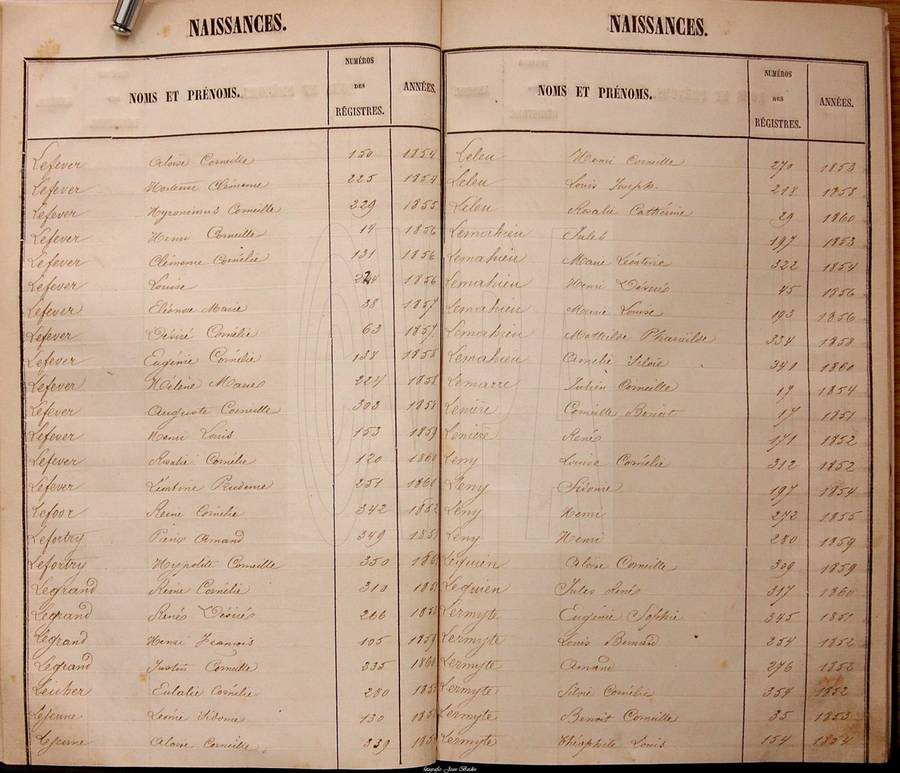 NAISSANCES.
NOMS ET PRÉNOMS. NUMÉROS DES RÉGISTRES. ANNÉES.
Lefever Aloïse Corneille 150 1854
Lefever Hortense Clémence 225 1854
Lefever Hyronimus Corneille 229 1855
Lefever Henri Corneille 14 1856
Lefever Clémence Cornélie 131 1856
Lefever Louise 1856
Lefever Eléonore Marie 38 1857
Lefever Désiré Cornélie 63 1857
Lefever Eugénie Cornélie 138 1858
Lefever Helène Marie 224 1858
Lefever Auguste Corneille 303 1858
Lefever Henri Louis 153 1859
Lefever Rosalie Cornélie 120 1860
Lefever Léontine Prudence 251 1860
Lefoor Reine Cornélie 342 1852
Lefortry Pierre Amand 349
Lefortry Hypolite Corneille 350
Legrand Reine Cornélie 310
Legrand Renés Désirés 266
Legrand Henri François 105 1859
Legrand Justin Corneille 235 1860
Eulalie Cornélie 280
Lejeune Leonie Sidonie 130
Lejeune Aloise Corneille 339
NAISSANCES.
NOMS ET PRÉNOMS. NUMÉROS DES RÉGISTRES. ANNÉES.
Leleu Henri Corneille 270 1853
Leleu Louis Joseph. 218 1858
Leleu Rosalie Cathérine 29 1860
Lemahieu Jules 197 1853
Lemahieu Marie Léontine 322 1854
Lemahieu Henri Désirés 45 1856
Lemahieu Marie Louise 193 1856
Lemahieu Mathilde Pharaïlde 334 1858
Lemahieu Amelie Silvie 341 1860
Lemaire Julien Corneille 17 1854
Lenière Corneille Benoit 17 1851
Lenière Renés 171 1852
Leny Louise Cornélie 312 1852
Leny Sidonie 197 1854
Leny Henri 272 1855
Leny Henri 280 1859
Lequien Aloise Corneille 309 1859
Lequien Jules Renés 317 1860
Lermyte Eugénie Sophie 345 1851
Lermyte Louis Bernard 254 1852
Lermyte Amand 276 1852
Lermyte Silvie Cornélie 354 1852
Lermyte Benoit Corneille 35 1853
Lermyte Théophile Louis 154 1854